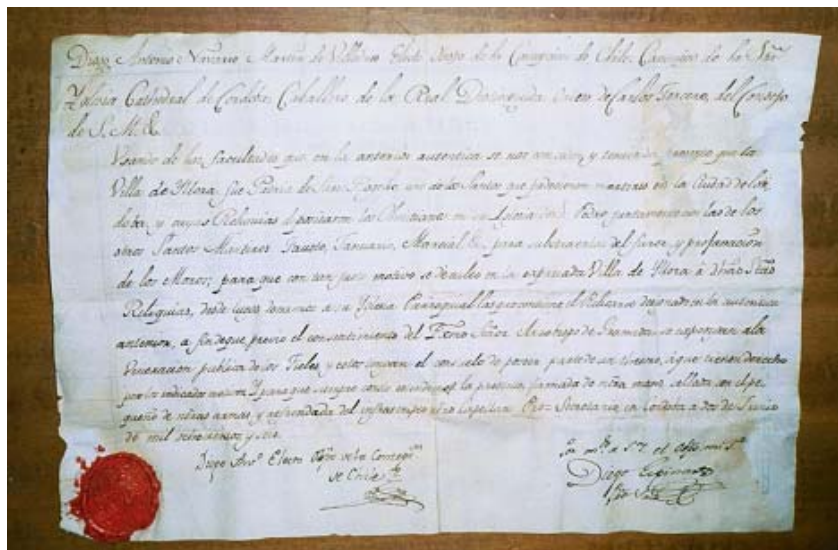 Diego Antonio Navarro Martin de Villodres Electo Obispo de la Concepcion de Chile, Canonigo de la Sta.
Yglesia Cathedral de Cordoba, Caballero de la Real Distinguida Orden de Carlos Tercero, del Consejo
de S. M. &.
Usando de las facultades que en la anterior autentica se nos y teniendo presente que la
Villa de Yllora fue Patria de San Rogelio, uno de los Santos que padecieron martirio en la Ciudad de Cor
doba, y cuyas Reliquias depositaron los Christianos en la Yglesia de S. Pedro juntamente con las de los
otros Santos Martires Fausto, Januario, Marcial &. para substraerlas del furor y profanacion
de los Moros; para que con tan justo motivo se de culto en la expresada Villa de Yllora à dhas. Stas.
Reliquias, desde luego donamos a su Yglesia Parroquial las el Relicario designado en la autentica
anterior, a fin de que previo el consentimiento del Exmo Señor Arzobispo de Granada se expongan a la
Veneracion publica de los Fieles, y estos tengan el consuelo de poseer parte de un thesoro, à que tienen derecho
por la indicada razon. Y para que siempre conste la presente, firmada de nra. mano, sellada con el pe
queño de nuestras armas, y refrendada del infraescripto nro Capellan Pro-Secretario en Cordoba a dos de Junio
de mil ochocientos y seis.
Diego Anto. Electo Obpo. de la Concepcn.
de Chile
Por mdo. de S. S. el Obpo. mi Sr.
Diego Espinosa
Pro Srio.